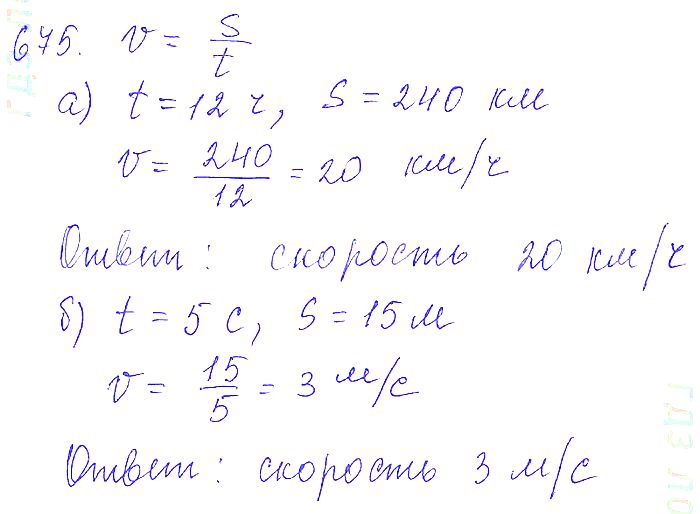 675. v = s/t
а) t = 12 ч, s = 240 км
v = 240/12 = 20 км/ч
Ответ: скорость 20 км/ч
б) t = 5 с, s = 15 м
v = 15/5 = 3 м/с
Ответ: скорость 3 м/с